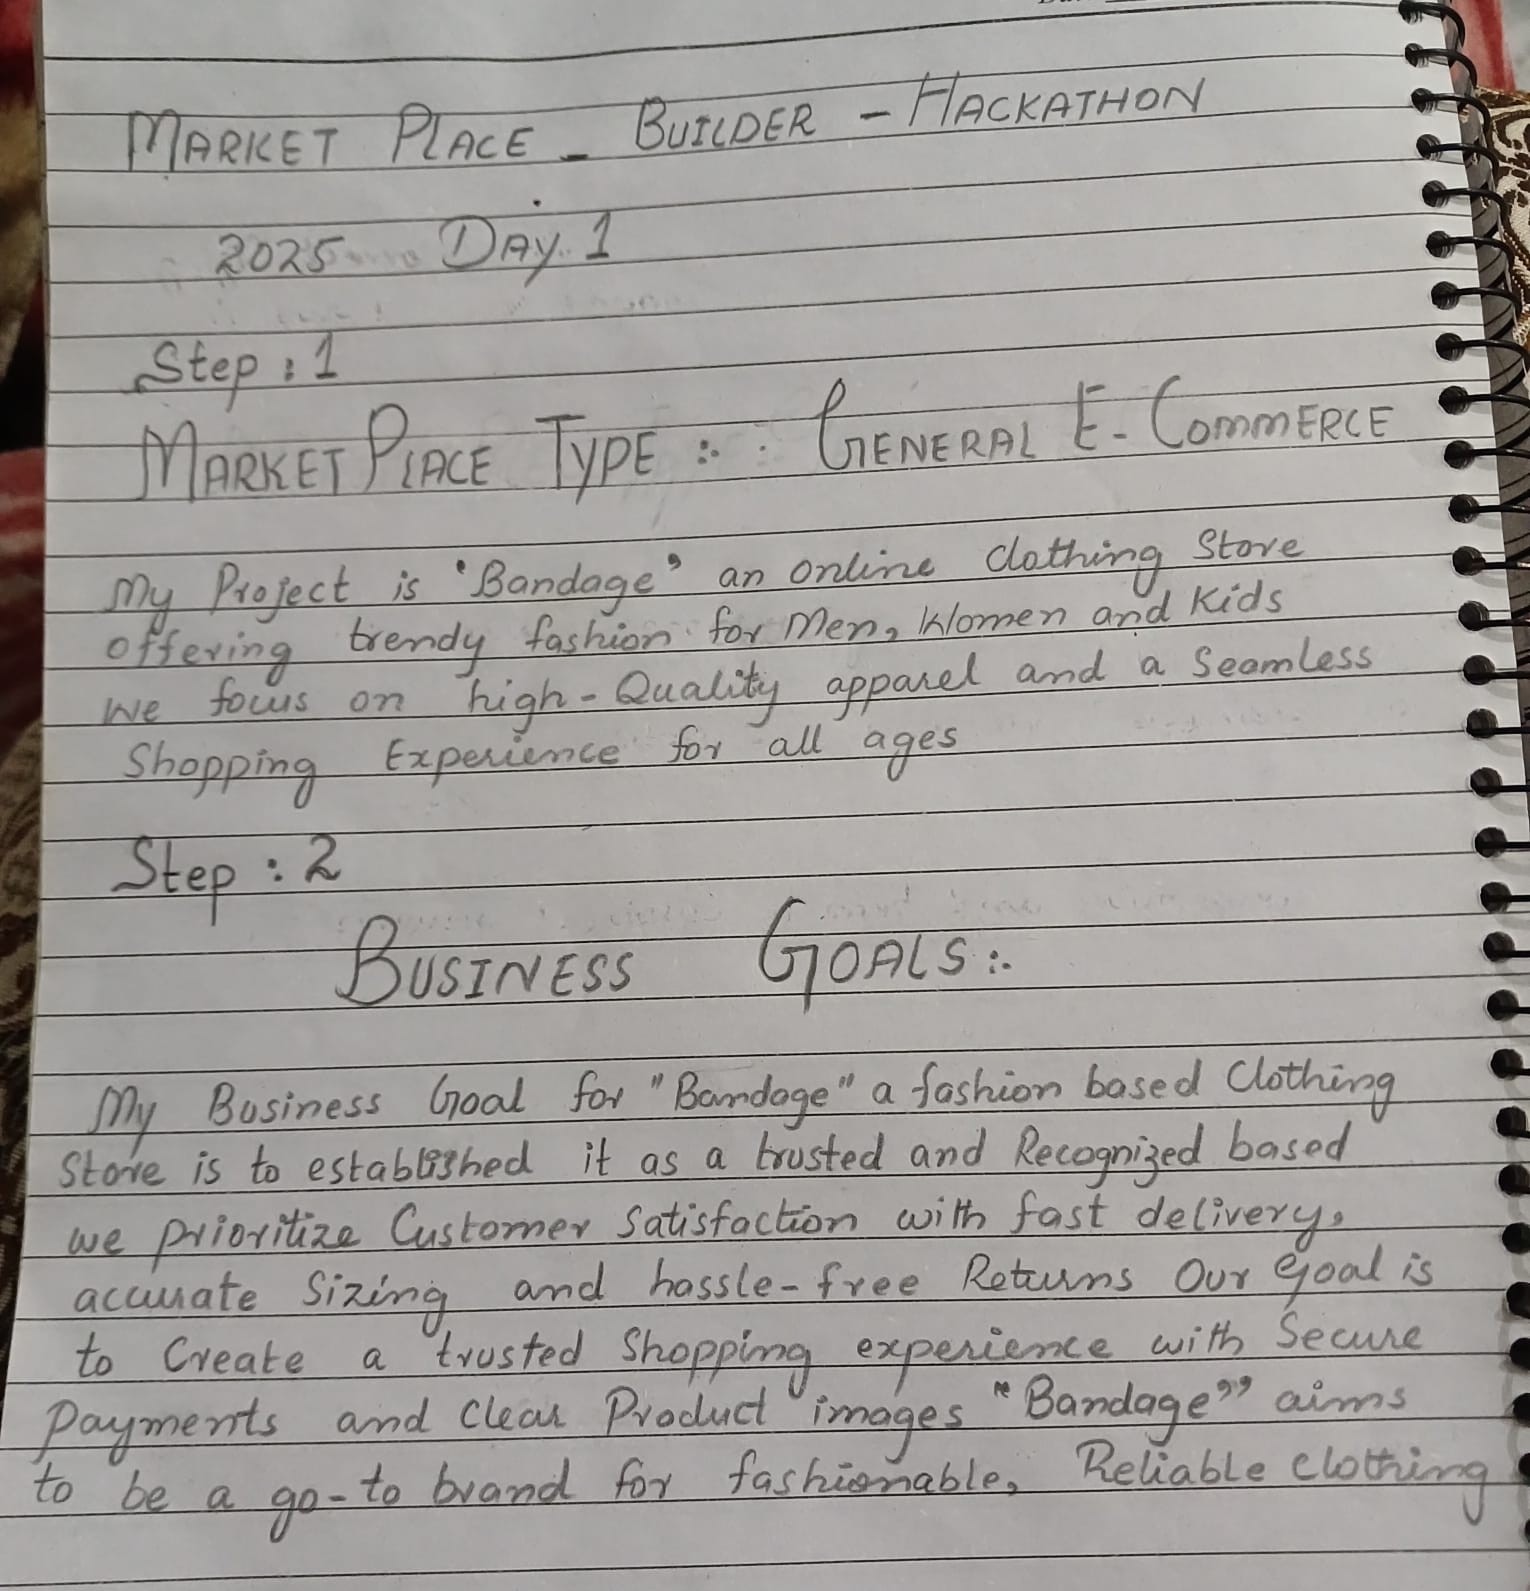 MARKET PLACE - BUILDER - HACKATHON
2025 DAY 1
Step : 1
MARKET PLACE TYPE :. GENERAL E-COMMERCE
My Project is 'Bandage' an online Clothing Store
offering trendy fashion for Men, Women and Kids
we focus on high-Quality apparel and a Seamless
Shopping Experience for all ages
Step : 2
BUSINESS GOALS :.
My Business Goal for "Bandage" a fashion based Clothing
Store is to established it as a trusted and Recognized based
we prioritize Customer Satisfaction with fast delivery,
accurate Sizing and hassle-free Returns Our goal is
to Create a trusted Shopping experience with Secure
Payments and Clear Product images "Bandage" aims
to be a go-to brand for fashionable, Reliable clothing